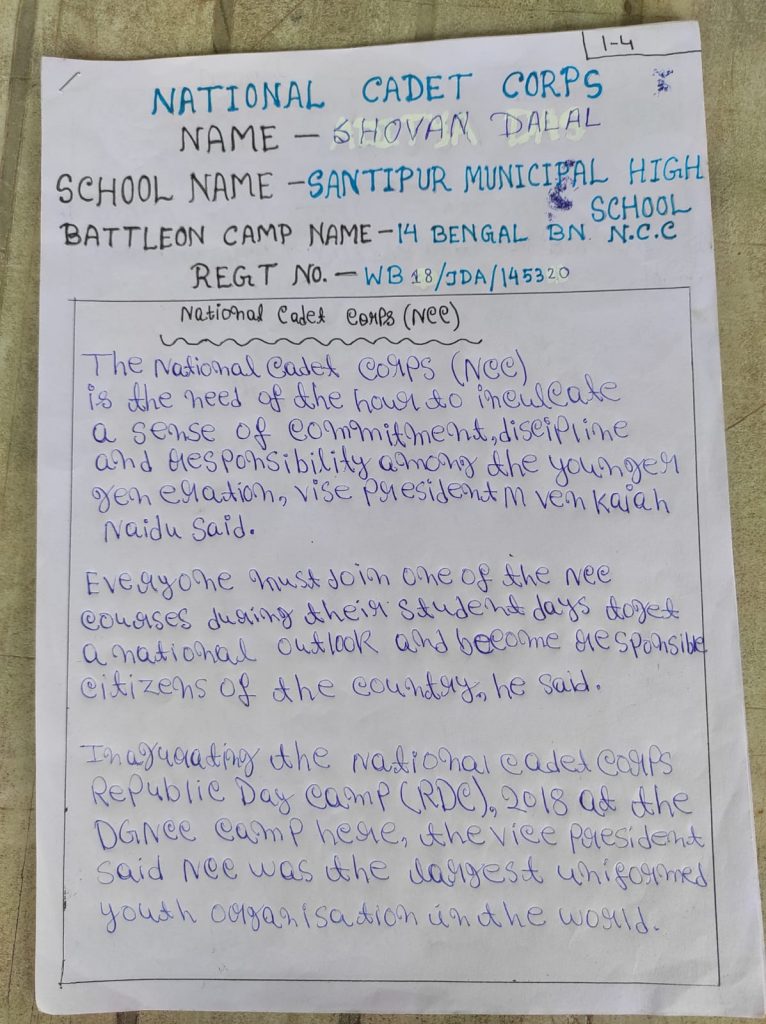 1-4
NATIONAL CADET CORPS
NAME - SHOVAN DALAL
SCHOOL NAME - SANTIPUR MUNICIPAL HIGH
SCHOOL
BATTLEON CAMP NAME - 14 BENGAL BN. N.C.C
REGT NO. - WB 18/JDA/145320
National Cadet Corps (NCC)
The National Cadet Corps (NCC)
is the need of the hour to inculcate
a sense of commitment, discipline
and responsibility among the younger
generation, vise president M Venkaiah
Naidu said.
Everyone must Join one of the NCC
courses during their student days to get
a national outlook and become responsible
citizens of the country, he said.
Inagurating the National cadet corps
Republic Day camp (RDC), 2018 at the
DGNCC camp here, the vice president
said NCC was the largest uniformed
youth organisation in the world.